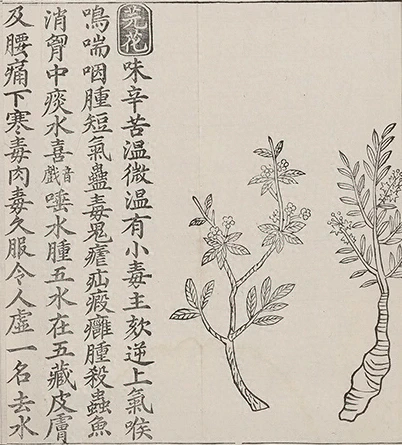 芫花味辛苦溫微溫有小毒主欬逆上氣喉
鳴喘咽腫短氣蠱毒鬼瘧疝瘕癰腫殺蟲魚
消胷中痰水喜音戲唾水腫五水在五藏皮膚
及腰痛下寒毒肉毒久服令人虛一名去水